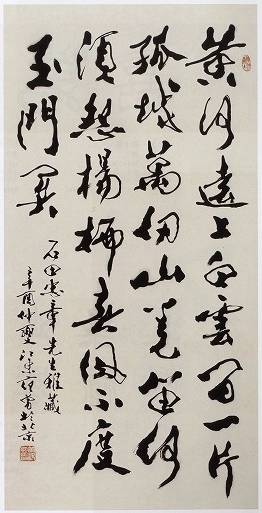 黄河遠上白雲間一片
孤城萬仞山羌笛何
須怨楊柳春風不度
玉門関
石田章先生雅藏
辛酉仲夏江東范曾於北京